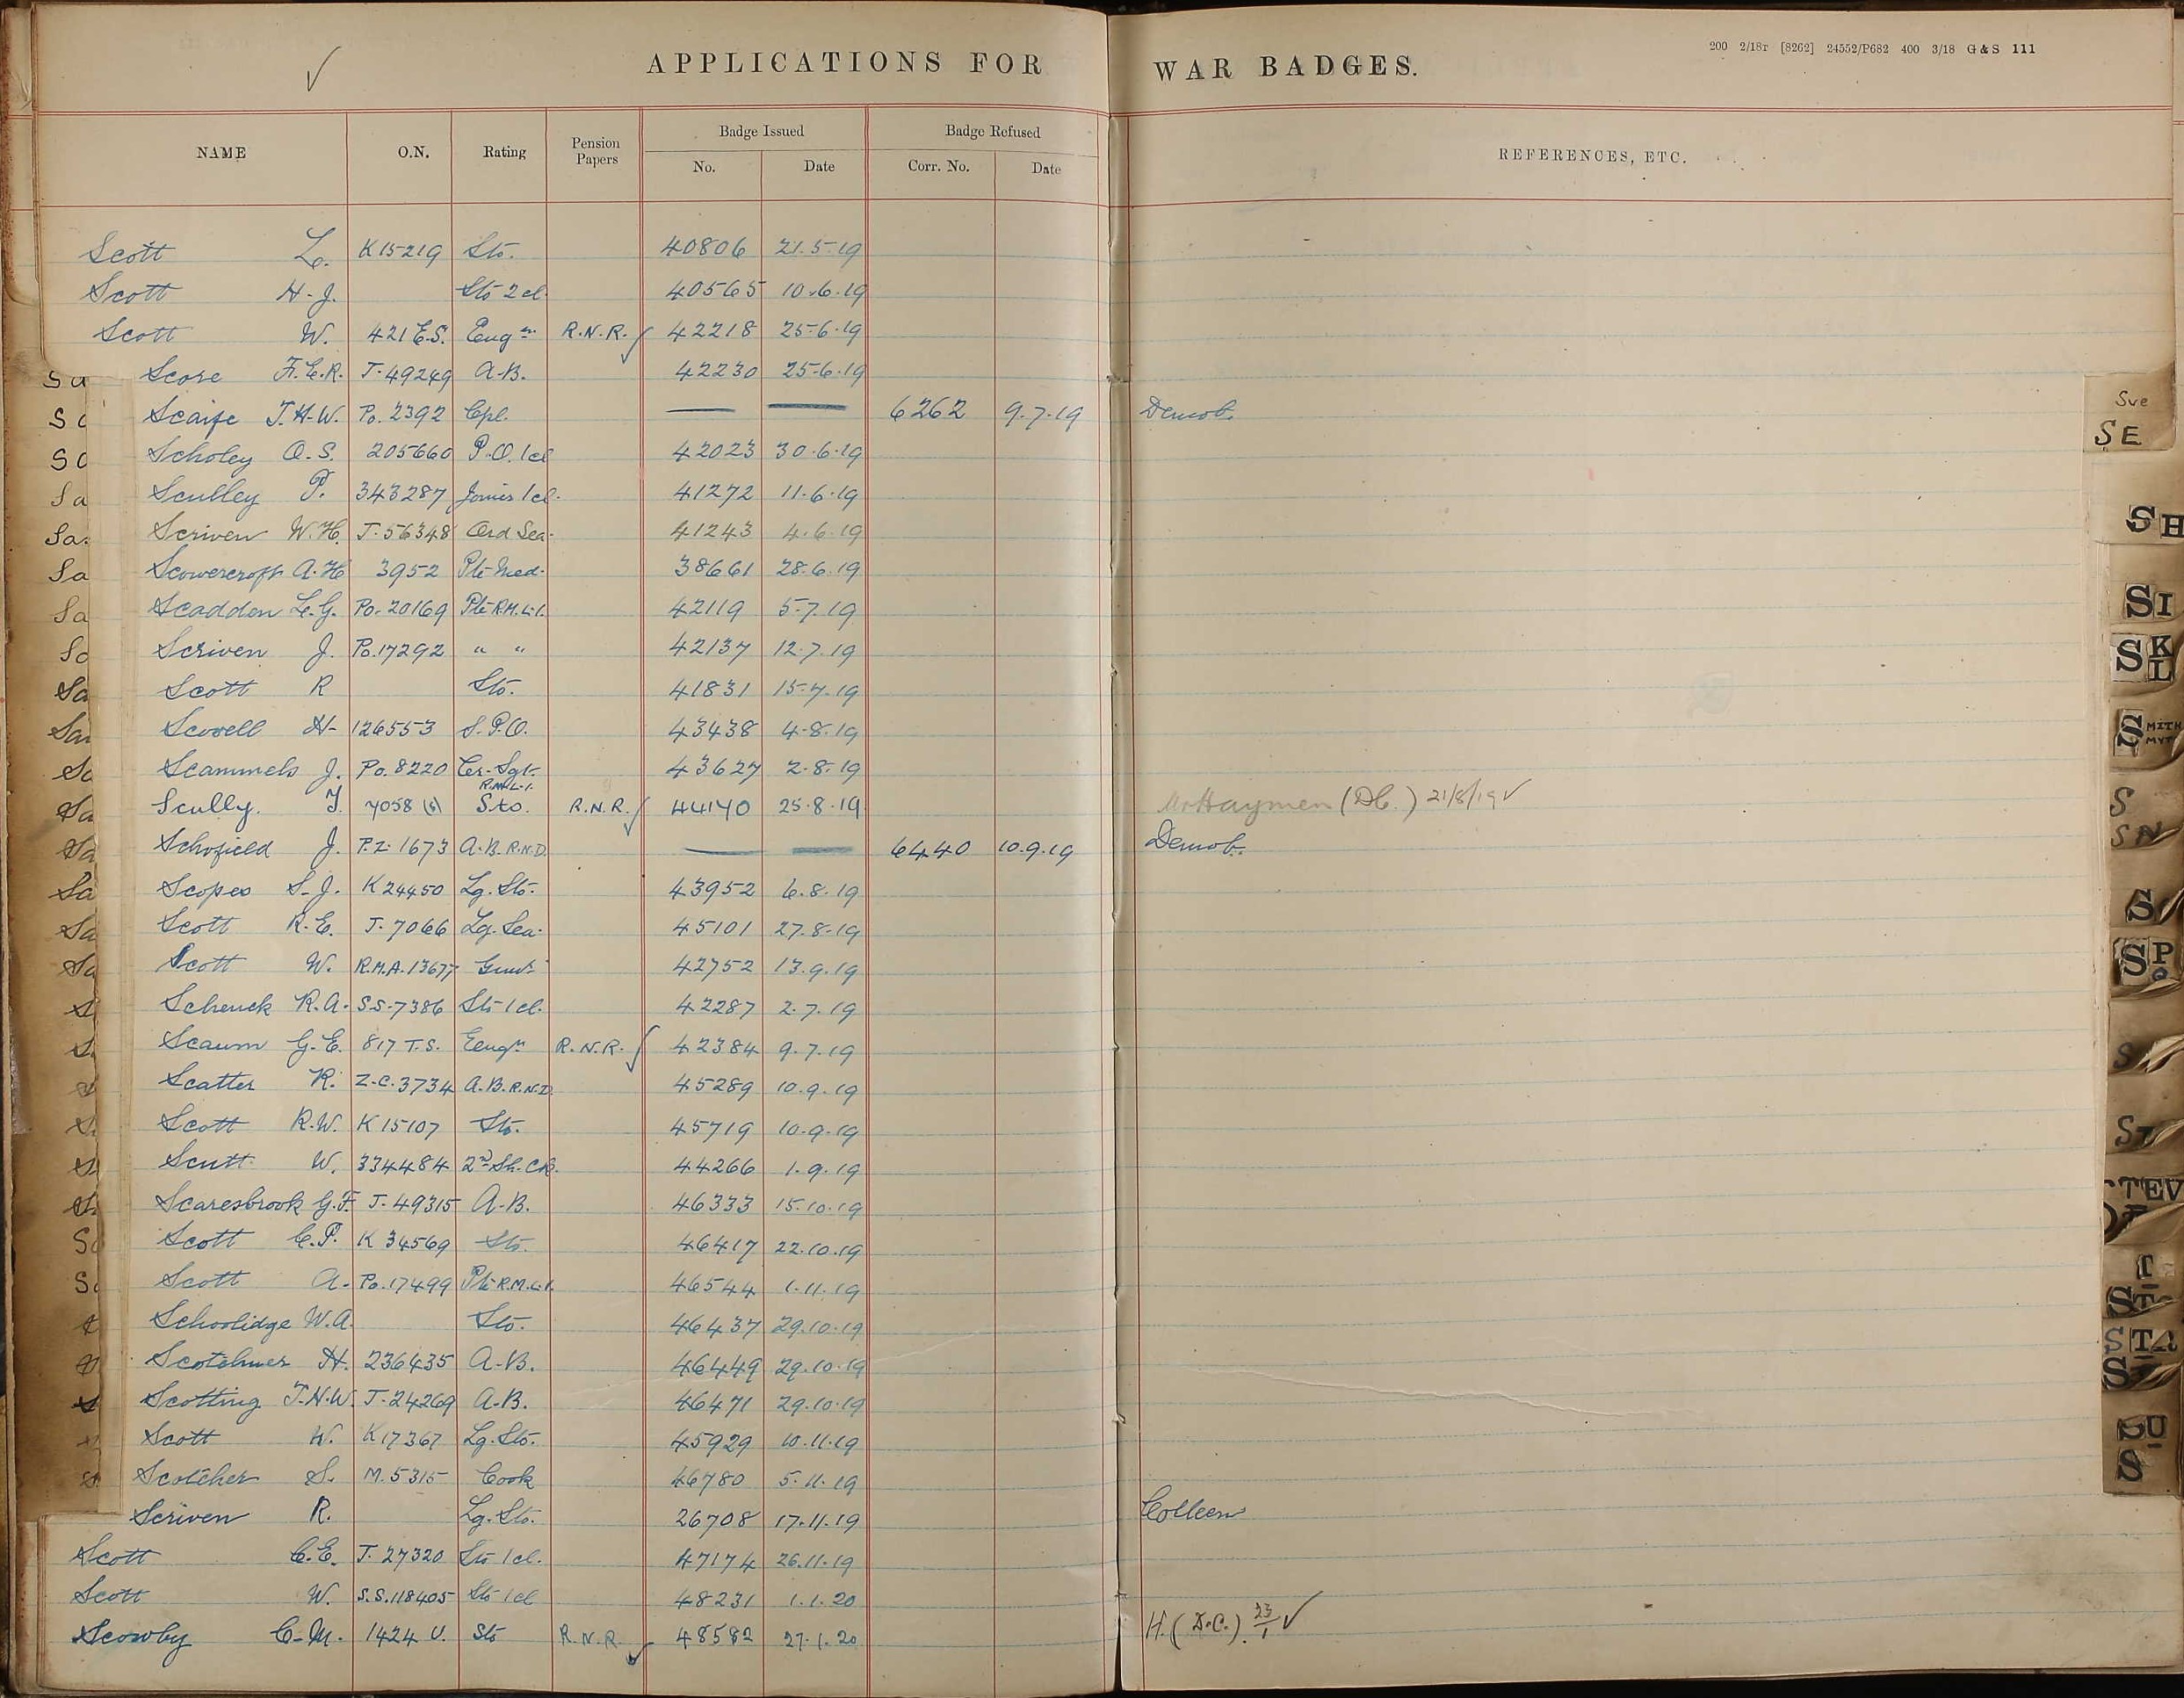 APPLICATIONS FOR WAR BADGES.
200 2/18r [8262] 24552/P682 400 3/18 G & S 111
NAME O.N. Rating Pension Papers Badge Issued Badge Refused REFERENCES, ETC.
No. Date Corr. No. Date
Scott L. K15219 Sto. 40806 21.5.19
Scott H.J. Sto 2cl. 40565 10.6.19
Scott W. 421 E.S. Engn R.N.R. ✓ 42218 25-6.19
Score F.E.R. J.49249 A.B. 42230 25-6.19
Scaife T.H.W. Po. 2392 Cpl. — — 6262 9.7.19 Demob.
Scholey O.S. 205660 P.O. 1cl 42023 30.6.19
Sculley P. 343287 Joiner 1cl. 41272 11.6.19
Scriven W.H. J.56348 Ord Sea. 41243 4.6.19
Scowcroft A.H 3952 Pte Med. 38661 28.6.19
Scadden L.G. Po. 20169 Pte R.M.L.I. 42119 5.7.19
Scriven J. Po.17292 " " 42137 12.7.19
Scott R Sto. 41831 15.7.19
Scovell H. 126553 S.P.O. 43438 4.8.19
Scammels J. Po. 8220 Cr. Sgt. R.M.L.I. 43627 2.8.19
Scully. J. 7058 (S) Sto. R.N.R. ✓ 44170 25.8.19 Mr Haymen (DC.) 21/8/19 ✓
Schofield J. P.Z. 1673 A.B. R.N.D. — — 6440 10.9.19 Demob.
Scopes S.J. K 24450 Lg. Sto. 43952 6.8.19
Scott R.E. J. 7066 Lg. Sea. 45101 27.8.19
Scott W. R.M.A. 13677 Gunr 42752 13.9.19
Schenck R.A. S.S. 7386 Sto 1cl. 42287 2.7.19
Scaum G.E. 817 T.S. Engn R.N.R. ✓ 42384 9.7.19
Scatter R. Z.C. 3734 A.B. R.N.D. 45289 10.9.19
Scott R.W. K 15107 Sto. 45719 10.9.19
Scutt W. 334484 2nd Sh. Ck. 44266 1.9.19
Scaresbrook G.F. J. 49315 A.B. 46333 15.10.19
Scott C.P. K 34569 Sto. 46417 22.10.19
Scott A. Po. 17499 Pte R.M.L.I. 46544 1.11.19
Schoolidge W.A. Sto. 46437 29.10.19
Scotchmer H. 236435 A.B. 46449 29.10.19
Scotting T.H.W. J. 24269 A.B. 46471 29.10.19
Scott W. K17367 Lg. Sto. 45929 10.11.19
Scotcher S. M. 5315 Cook 46780 5.11.19
Scriven R. Lg. Sto. 26708 17.11.19 Colleen
Scott C.E. J. 27320 Sto 1cl. 47174 26.11.19
Scott W. S.S. 118405 Sto 1cl 48231 1.1.20
Scowby C.M. 1424 U. Sto R.N.R. ✓ 48582 27.1.20 H. (D.C.). 23/1 ✓
Sve
SE
SH
SI
SK
L
S MITH
MYT
S
SN
S
SP
O
S
ST
STEV
ST
STA
SU
S